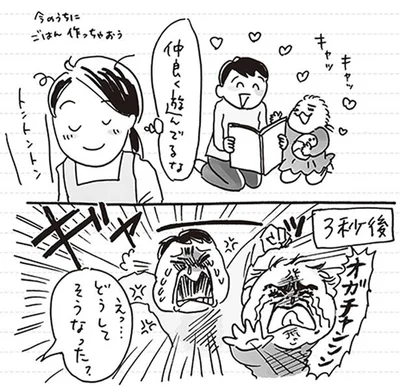 今のうちに
ごはん 作っちゃおう
仲良く
遊んでるな
キャッ
キャッ
トントントン
3秒後
オガチャンン
ギャ
えっ…
どうして
そうなった?